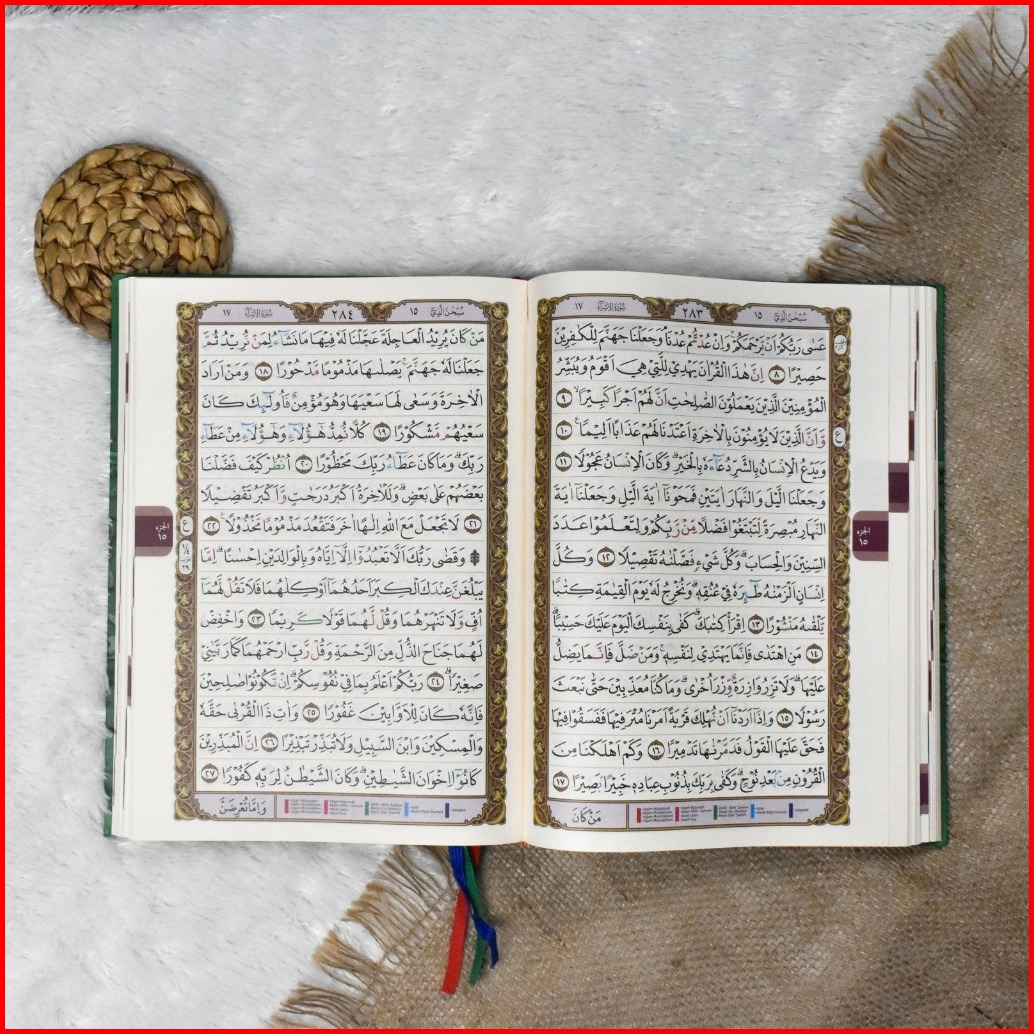 سُبْحٰنَ الَّذِيْ ١٥
٢٨٣
سُوْرَةُ الْاِسْرَاۤءِ ١٧
عَسٰى رَبُّكُمْ اَنْ يَّرْحَمَكُمْۚ وَاِنْ عُدْتُّمْ عُدْنَاۘ وَجَعَلْنَا جَهَنَّمَ لِلْكٰفِرِيْنَ
حَصِيْرًا ٨ اِنَّ هٰذَا الْقُرْاٰنَ يَهْدِيْ لِلَّتِيْ هِيَ اَقْوَمُ وَيُبَشِّرُ
الْمُؤْمِنِيْنَ الَّذِيْنَ يَعْمَلُوْنَ الصّٰلِحٰتِ اَنَّ لَهُمْ اَجْرًا كَبِيْرًاۙ ٩
وَّاَنَّ الَّذِيْنَ لَا يُؤْمِنُوْنَ بِالْاٰخِرَةِ اَعْتَدْنَا لَهُمْ عَذَابًا اَلِيْمًاࣖ ١٠
وَيَدْعُ الْاِنْسَانُ بِالشَّرِّ دُعَاۤءَهٗ بِالْخَيْرِۗ وَكَانَ الْاِنْسَانُ عَجُوْلًا ١١
وَجَعَلْنَا الَّيْلَ وَالنَّهَارَ اٰيَتَيْنِ فَمَحَوْنَآ اٰيَةَ الَّيْلِ وَجَعَلْنَآ اٰيَةَ
النَّهَارِ مُبْصِرَةً لِّتَبْتَغُوْا فَضْلًا مِّنْ رَّبِّكُمْ وَلِتَعْلَمُوْا عَدَدَ
السِّنِيْنَ وَالْحِسَابَۗ وَكُلَّ شَيْءٍ فَصَّلْنٰهُ تَفْصِيْلًا ١٢ وَكُلَّ
اِنْسَانٍ اَلْزَمْنٰهُ طٰۤىِٕرَهٗ فِيْ عُنُقِهٖۗ وَنُخْرِجُ لَهٗ يَوْمَ الْقِيٰمَةِ كِتٰبًا
يَّلْقٰىهُ مَنْشُوْرًا ١٣ اِقْرَأْ كِتٰبَكَۗ كَفٰى بِنَفْسِكَ الْيَوْمَ عَلَيْكَ حَسِيْبًاۗ
١٤ مَنِ اهْتَدٰى فَاِنَّمَا يَهْتَدِيْ لِنَفْسِهٖۚ وَمَنْ ضَلَّ فَاِنَّمَا يَضِلُّ
عَلَيْهَاۗ وَلَا تَزِرُ وَازِرَةٌ وِّزْرَ اُخْرٰىۗ وَمَا كُنَّا مُعَذِّبِيْنَ حَتّٰى نَبْعَثَ
رَسُوْلًا ١٥ وَاِذَآ اَرَدْنَآ اَنْ نُّهْلِكَ قَرْيَةً اَمَرْنَا مُتْرَفِيْهَا فَفَسَقُوْا فِيْهَا
فَحَقَّ عَلَيْهَا الْقَوْلُ فَدَمَّرْنٰهَا تَدْمِيْرًا ١٦ وَكَمْ اَهْلَكْنَا مِنَ
الْقُرُوْنِ مِنْۢ بَعْدِ نُوْحٍۗ وَكَفٰى بِرَبِّكَ بِذُنُوْبِ عِبَادِهٖ خَبِيْرًاۢ بَصِيْرًا ١٧
مَنْ كَانَ
الجزء ١٥
سُبْحٰنَ الَّذِيْ ١٥
٢٨٤
سُوْرَةُ الْاِسْرَاۤءِ ١٧
مَنْ كَانَ يُرِيْدُ الْعَاجِلَةَ عَجَّلْنَا لَهٗ فِيْهَا مَا نَشَاۤءُ لِمَنْ نُّرِيْدُ ثُمَّ
جَعَلْنَا لَهٗ جَهَنَّمَۚ يَصْلٰىهَا مَذْمُوْمًا مَّدْحُوْرًا ١٨ وَمَنْ اَرَادَ
الْاٰخِرَةَ وَسَعٰى لَهَا سَعْيَهَا وَهُوَ مُؤْمِنٌ فَاُولٰۤىِٕكَ كَانَ
سَعْيُهُمْ مَّشْكُوْرًا ١٩ كُلًّا نُّمِدُّ هٰٓؤُلَاۤءِ وَهٰٓؤُلَاۤءِ مِنْ عَطَاۤءِ
رَبِّكَۗ وَمَا كَانَ عَطَاۤءُ رَبِّكَ مَحْظُوْرًا ٢٠ اُنْظُرْ كَيْفَ فَضَّلْنَا
بَعْضَهُمْ عَلٰى بَعْضٍۗ وَلَلْاٰخِرَةُ اَكْبَرُ دَرَجٰتٍ وَّاَكْبَرُ تَفْضِيْلًا
٢١ لَا تَجْعَلْ مَعَ اللّٰهِ اِلٰهًا اٰخَرَ فَتَقْعُدَ مَذْمُوْمًا مَّخْذُوْلًاࣖ ٢٢
۞ وَقَضٰى رَبُّكَ اَلَّا تَعْبُدُوْٓا اِلَّآ اِيَّاهُ وَبِالْوَالِدَيْنِ اِحْسٰنًاۗ اِمَّا
يَبْلُغَنَّ عِنْدَكَ الْكِبَرَ اَحَدُهُمَآ اَوْ كِلٰهُمَا فَلَا تَقُلْ لَّهُمَآ
اُفٍّ وَّلَا تَنْهَرْهُمَا وَقُلْ لَّهُمَا قَوْلًا كَرِيْمًا ٢٣ وَاخْفِضْ
لَهُمَا جَنَاحَ الذُّلِّ مِنَ الرَّحْمَةِ وَقُلْ رَّبِّ ارْحَمْهُمَا كَمَا رَبَّيٰنِيْ
صَغِيْرًاۗ ٢٤ رَبُّكُمْ اَعْلَمُ بِمَا فِيْ نُفُوْسِكُمْۗ اِنْ تَكُوْنُوْا صٰلِحِيْنَ
فَاِنَّهٗ كَانَ لِلْاَوَّابِيْنَ غَفُوْرًا ٢٥ وَاٰتِ ذَا الْقُرْبٰى حَقَّهٗ
وَالْمِسْكِيْنَ وَابْنَ السَّبِيْلِ وَلَا تُبَذِّرْ تَبْذِيْرًا ٢٦ اِنَّ الْمُبَذِّرِيْنَ
كَانُوْٓا اِخْوَانَ الشَّيٰطِيْنِۗ وَكَانَ الشَّيْطٰنُ لِرَبِّهٖ كَفُوْرًا ٢٧
وَاِمَّا تُعْرِضَنَّ
الجزء ١٥